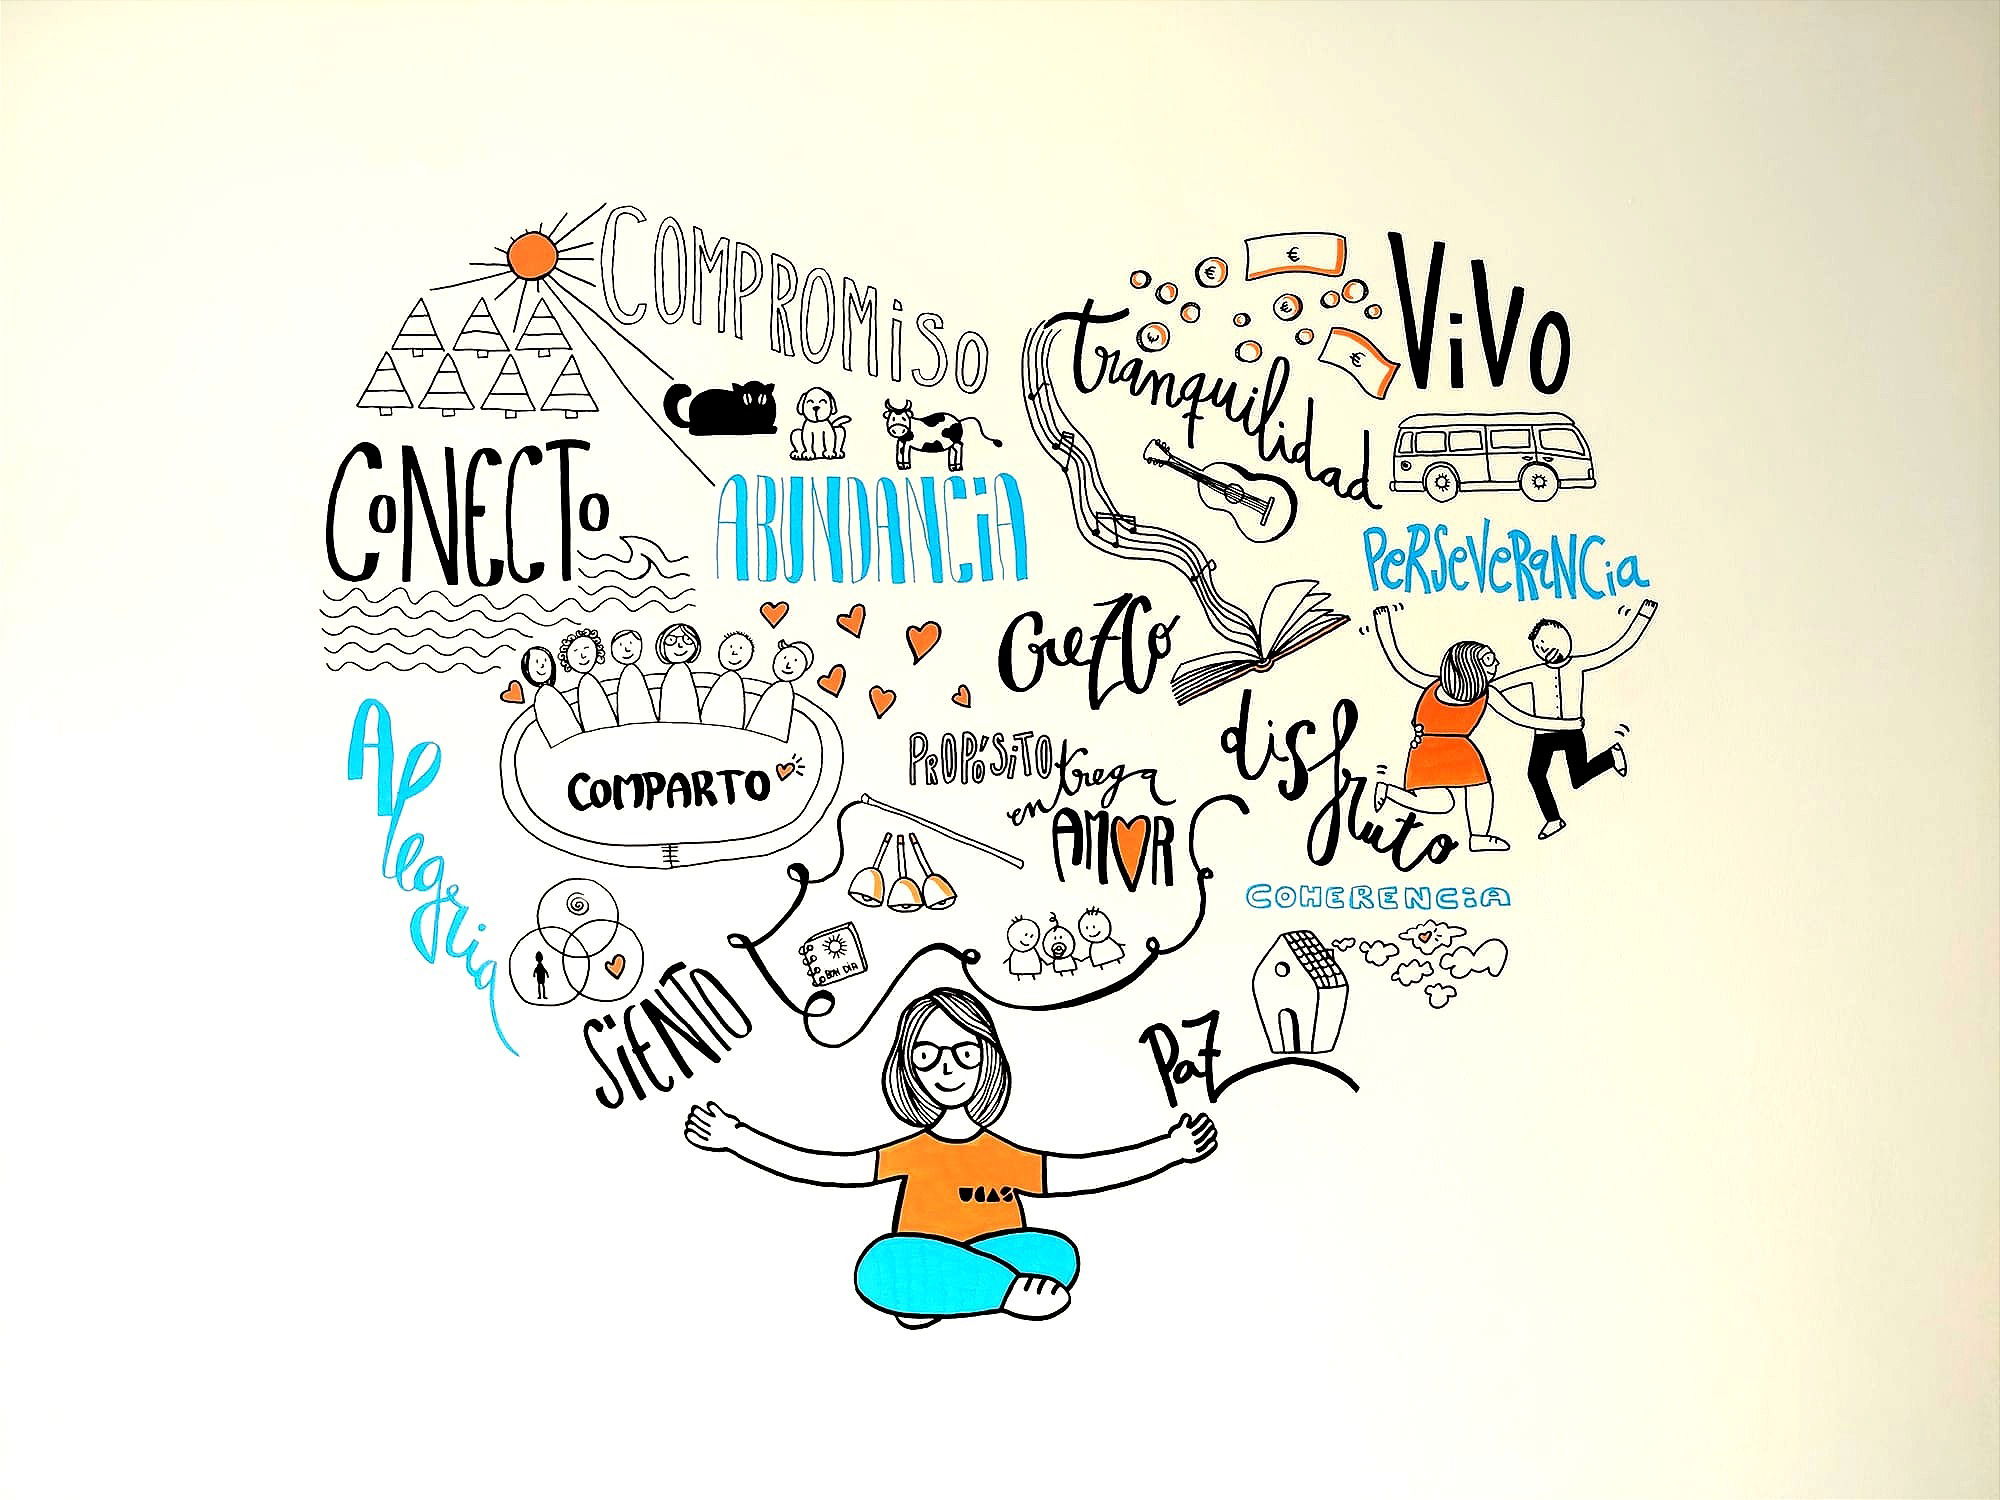 COMPROMiSO
€
€
€
€
€
ViVO
tranquilidad
CoNECTo
ABUNDANCiA
PeRSeVeRaNCia
CreZCo
Alegria
PROPÓSiTO
entrega
AMOR
disfruto
COMPARTO
COHERENCiA
BON DIA
SiENTO
PaZ
UCAS